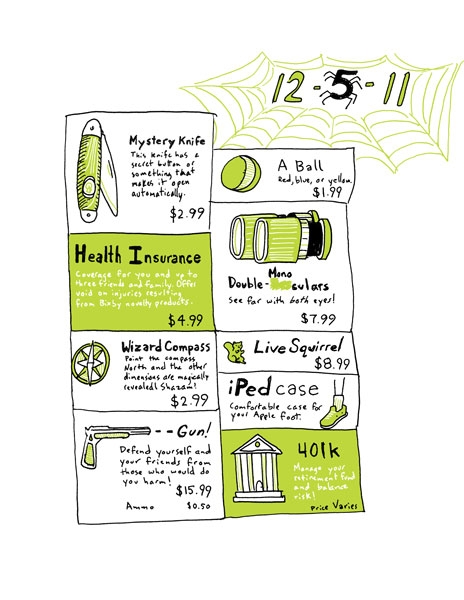 12-5-11
Mystery Knife
This knife has a
secret button or
something that
makes it open
automatically.
$2.99
Health Insurance
Coverage for you and up to
three friends and family. Offers
void on injuries resulting
from Bixby novelty products.
$4.99
Wizard Compass
Point the compass
North and the other
dimensions are magically
revealed! Shazam!
$2.99
--Gun!
Defend yourself and
your friends from
those who would do
you harm!
$15.99
Ammo $0.50
A Ball
Red, blue, or yellow.
$1.99
Mono
Double-culars
see far with both eyes!
$7.99
Live Squirrel
$8.99
iPed case
Comfortable case for
your Apple foot.
401k
Manage your
retirement fund
and balance
risk!
Price Varies